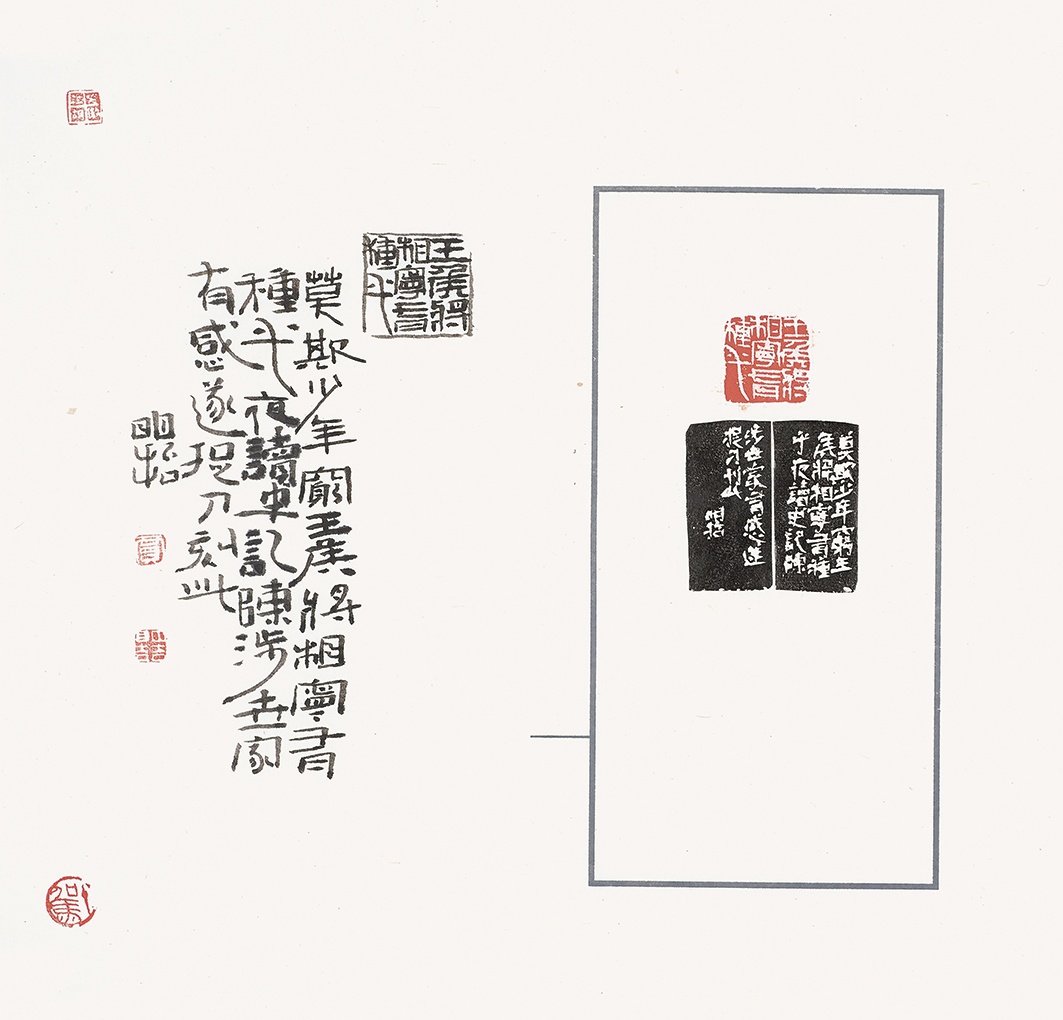 王侯將
相寧有
種乎
莫欺少年窮王
侯將相寧有種
乎夜讀史記陳
涉世家有感遂
捉刀刻此
王侯將
相寧有
種乎
莫欺少年窮王侯將相寧有
種乎夜讀史記陳涉世家
有感遂捉刀刻此